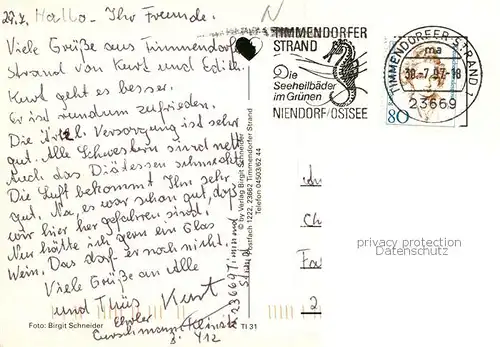 29.7. Hallo - Ihr Freunde.
Viele Grüße aus Timmendorf
Strand von Kurt und Edith.
Kurt geht es besser.
Er ist rundum zufrieden.
Die ärztl. Versorgung ist sehr
gut. Alle Schwestern sind nett
Auch das Diätessen schmeckt.
Die Luft bekommt Ihm sehr
gut. Na, es war schon gut, daß
wir hier her gefahren sind.
Nur hätte ich gern ein Glas
Wein. Das darf er noch nicht.
Viele Grüße an Alle
und Tschüs Kurt
Curschmann Klinik
Z. 412
23669 Timmend
Strand
Foto: Birgit Schneider
TI 31
© by Verlag Birgit Schneider
Postfach 1222, 23662 Timmendorfer Strand
Telefon 04503/62 44
N
TIMMENDORFER
STRAND
Die
Seeheilbäder
im Grünen
NIENDORF/OSTSEE
TIMMENDORFER STRAND 1
ma
30.-7.97-18
23669
80
privacy protection
Datenschutz